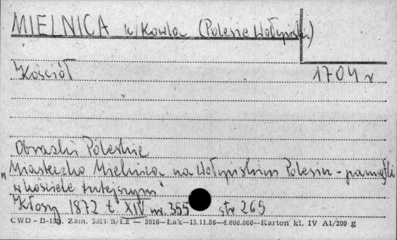 MIELNICA k/Kowla (Polesie Wołyńskie)
Kościół 1704 r
Obrazki Poleskie
"Miasteczko Mielnica na Wołyńskim Polesiu - pamiątki
w kościele tutejszym"
Kłosy 1872 t. XIV nr. 355 str 265
CWD - D-153. Zam. S/LZ — 3016— Łak.—15.11.56—4.000.000—Karton kl. IV A1/200 g